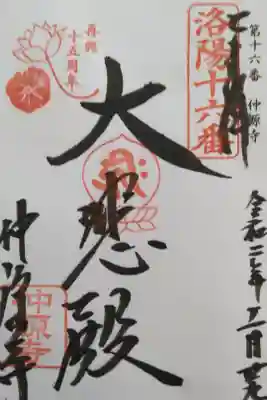 第十六番 仲源寺
洛陽十六番
令和二年十二月
大悲殿
再興
十五周年
仲源寺